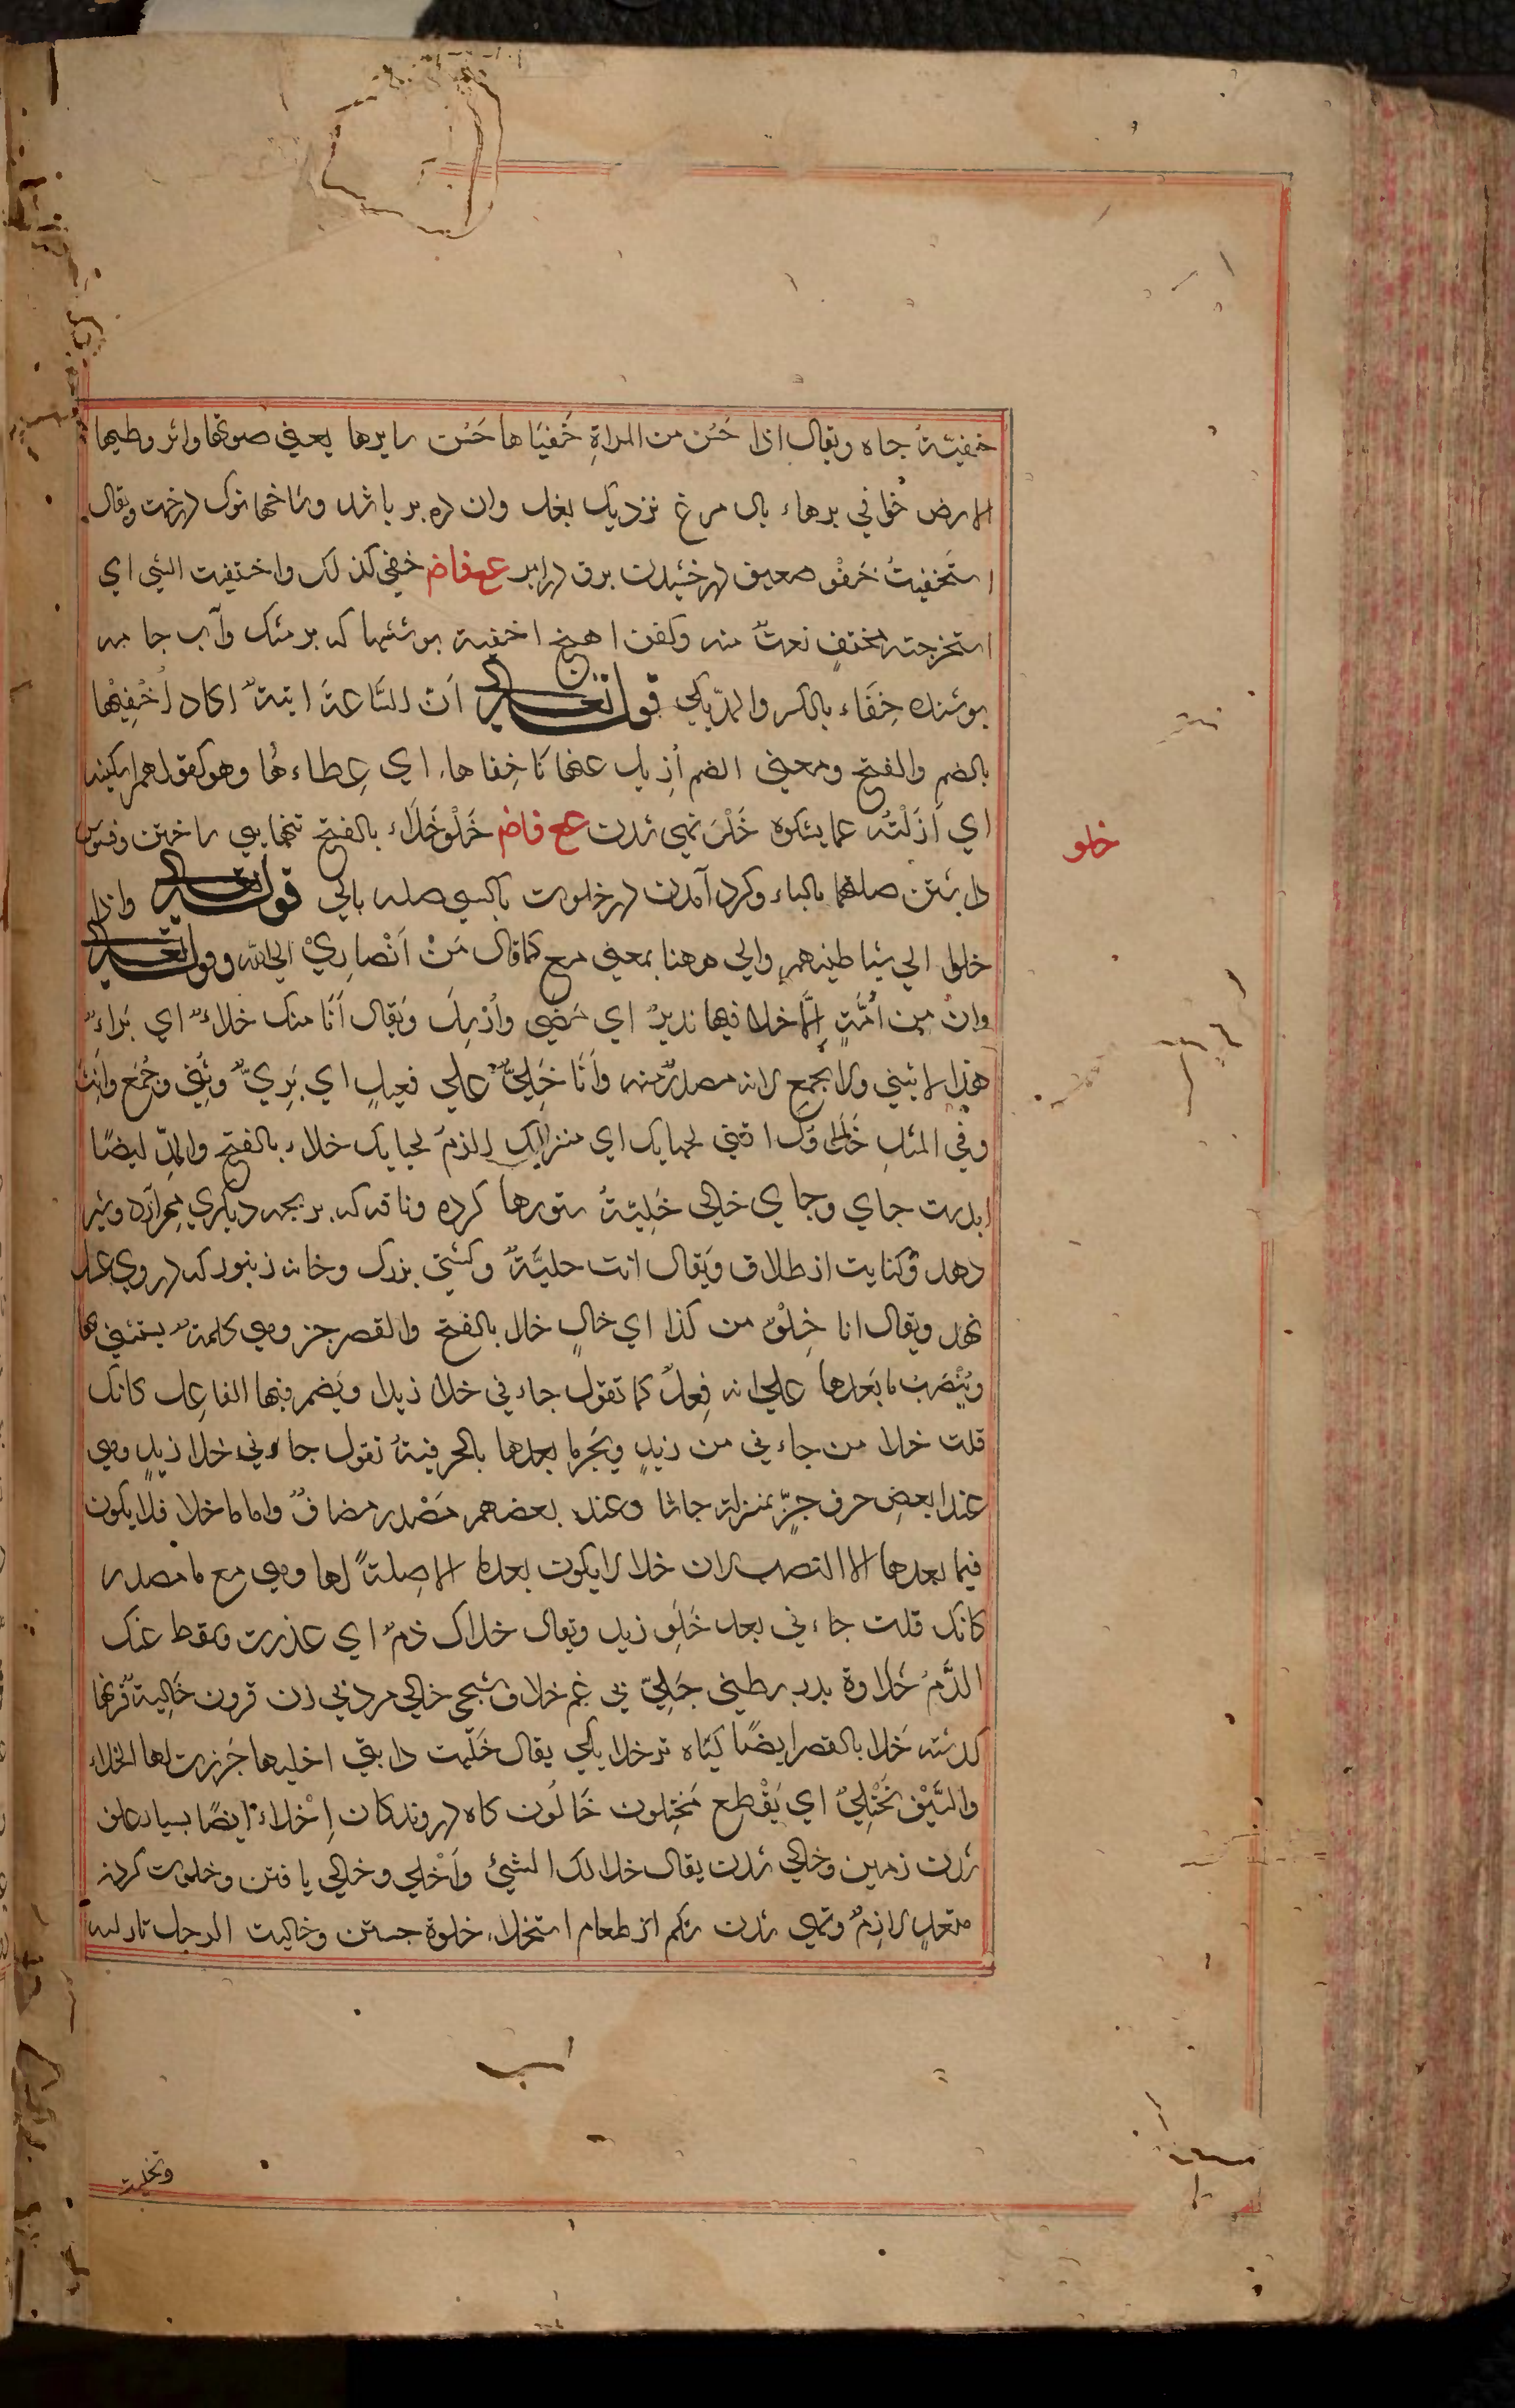 خفيّةٌ جاه ويقال اذا حَسُن من المراةِ خَفيَاها حَسُن سايرها يعني صوتها واثر وطيها
الارض خُوافي برهاء بال مرغ نزديك بغل وان ده پر باشد وشاخهانوك درخت ويقال
استَخفيتُ خَفْو صعيق درخشيدن برق در ابر ع ف ض خفي كذلك واختفيت الشي اي
استخرجته مختفٍ نعتٌ منه وكفن اهنج اخفية پوششها كه بر مشك وآب جامه
پوشند خِفَاء بالكسر والمدّ يكي قوله تعالى اَنّ السَّاعةَ اتيةٌ اكاد اُخْفِيْها
بالضم والفتح ومعنى الضم اُزِيل عنها خِفاها، اي غِطاءهُا وهو كقولهم اشكيته
اي اَزَلْتُه عما يشكوه خَلْو تهي شدن ع ف ض خَلْوخَلَاء بالفتح تنها بي ساختن وفسوس
داشتن صلتهما بالباء وكرد آمدن در خلوت باكسي صلته بالي قوله تعالى واذا
خلوا الي شياطينهم والي ههنا بمعنى مع كما قال مَنْ اَنْصارِيْ الي الله وقوله تعالى
وان من اُمَّةٍ اِلَّا خلا فيها نذيرٌ اي مَضٰي واُرْسِل وَيقال اَنَا منك خلاءٌ اي بَراءٌ
هذا لا يثني ولا يجمع لانه مصدرٌ منه واَنَا خَلِيٌّ علي فعيلٍ اي بَرِيٌ وثُني وجُمَع واُنث
وفي المثلِ خَلاؤك اقني لحيايك اي منزلك الزمٌ لحيايك خلاء بالفتح والمدّ ايضًا
ابدست جاي وجاي خالي خَلِيّةٌ ستورها كرده وناقه كه بر بچه ديكري مهر آرد وشير
دهد وكنايت از طلاق ويَقال انت خليَّةٌ وكشتي بزرك وخانه زنبور كه در وي عسل
نهد ويقال انا خِلْوٌ من كذا اي خالٍ خلا بالفتح والقصر جز وهي كلمةٌ يستثني بها
ويُنْصَبُ مابَعدها علي انه فِعلٌ كما تقول جاءني خلا زيدا ويَضمر فيها الفاعِل كانك
قلت خلا من جاءني من زيدٍ ويَجر ما بعدها بالحرفيةِ تقول جاءني خلا زيدٍ وهي
عند بعضِ حرف جرٍّ بمنزلة حاشا وعند بعضهم مَصْدر مضافٌ واما ما خلا فلا يكون
فيما بعدها الا النصب لان خلا لا يكون بعدما الا صِلتةً لها وهي مع ما مصدر
كانك قلت جاءني بعد خَلوِ زيد ويقال خلاك ذمٌ اي عذرت وسقط عنك
الذَّمُ خَلَاوة پدر بطني خَلِيّ بي غم خلاف شجي خالي مرد بي زن قرون خَاليةٌ قرنها
كدشته خَلا بالقصر ايضًا كياه تر خلا يكي يقال خَلَيت دابتي اخليها جَززت لها الخلاء
والسَّيْفُ يَخْتَلِيٌ اي يَقْطع مُخْتِلون خَالُون كاه دروندكان اِخْلاءٌ ايضًا بسيار علف
شدن زمين وخالي شدن يقال خلا لك الشيئ واَخْلي وخالي يافتن وخلوت كردن
متعدٍ لازمٌ وتهي شدن شكم از طعام استخلاء خلوة جستن وخاليت الرجل تاركته
وتخلية
خلو